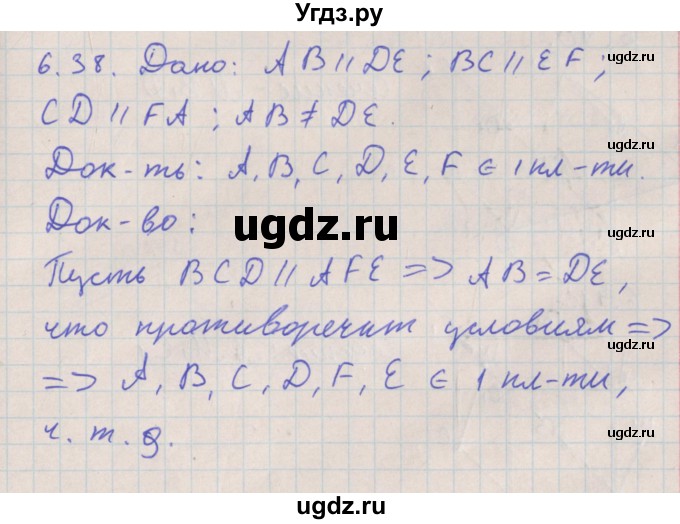 Угдз.ру
6.38. Дано: AB || DE; BC || EF;
CD || FA; AB ≠ DE.
Док-ть: A, B, C, D, E, F ∈ 1 пл-ти.
Док-во:
Пусть BCD || AFE => AB = DE,
что противоречит условиям =>
=> A, B, C, D, F, E ∈ 1 пл-ти,
ч. т. д.
ugdz.ru
ugdz.ru
ugdz.ru
ugdz.ru
ugdz.ru
ugdz.ru
ugdz.ru
ugdz.ru